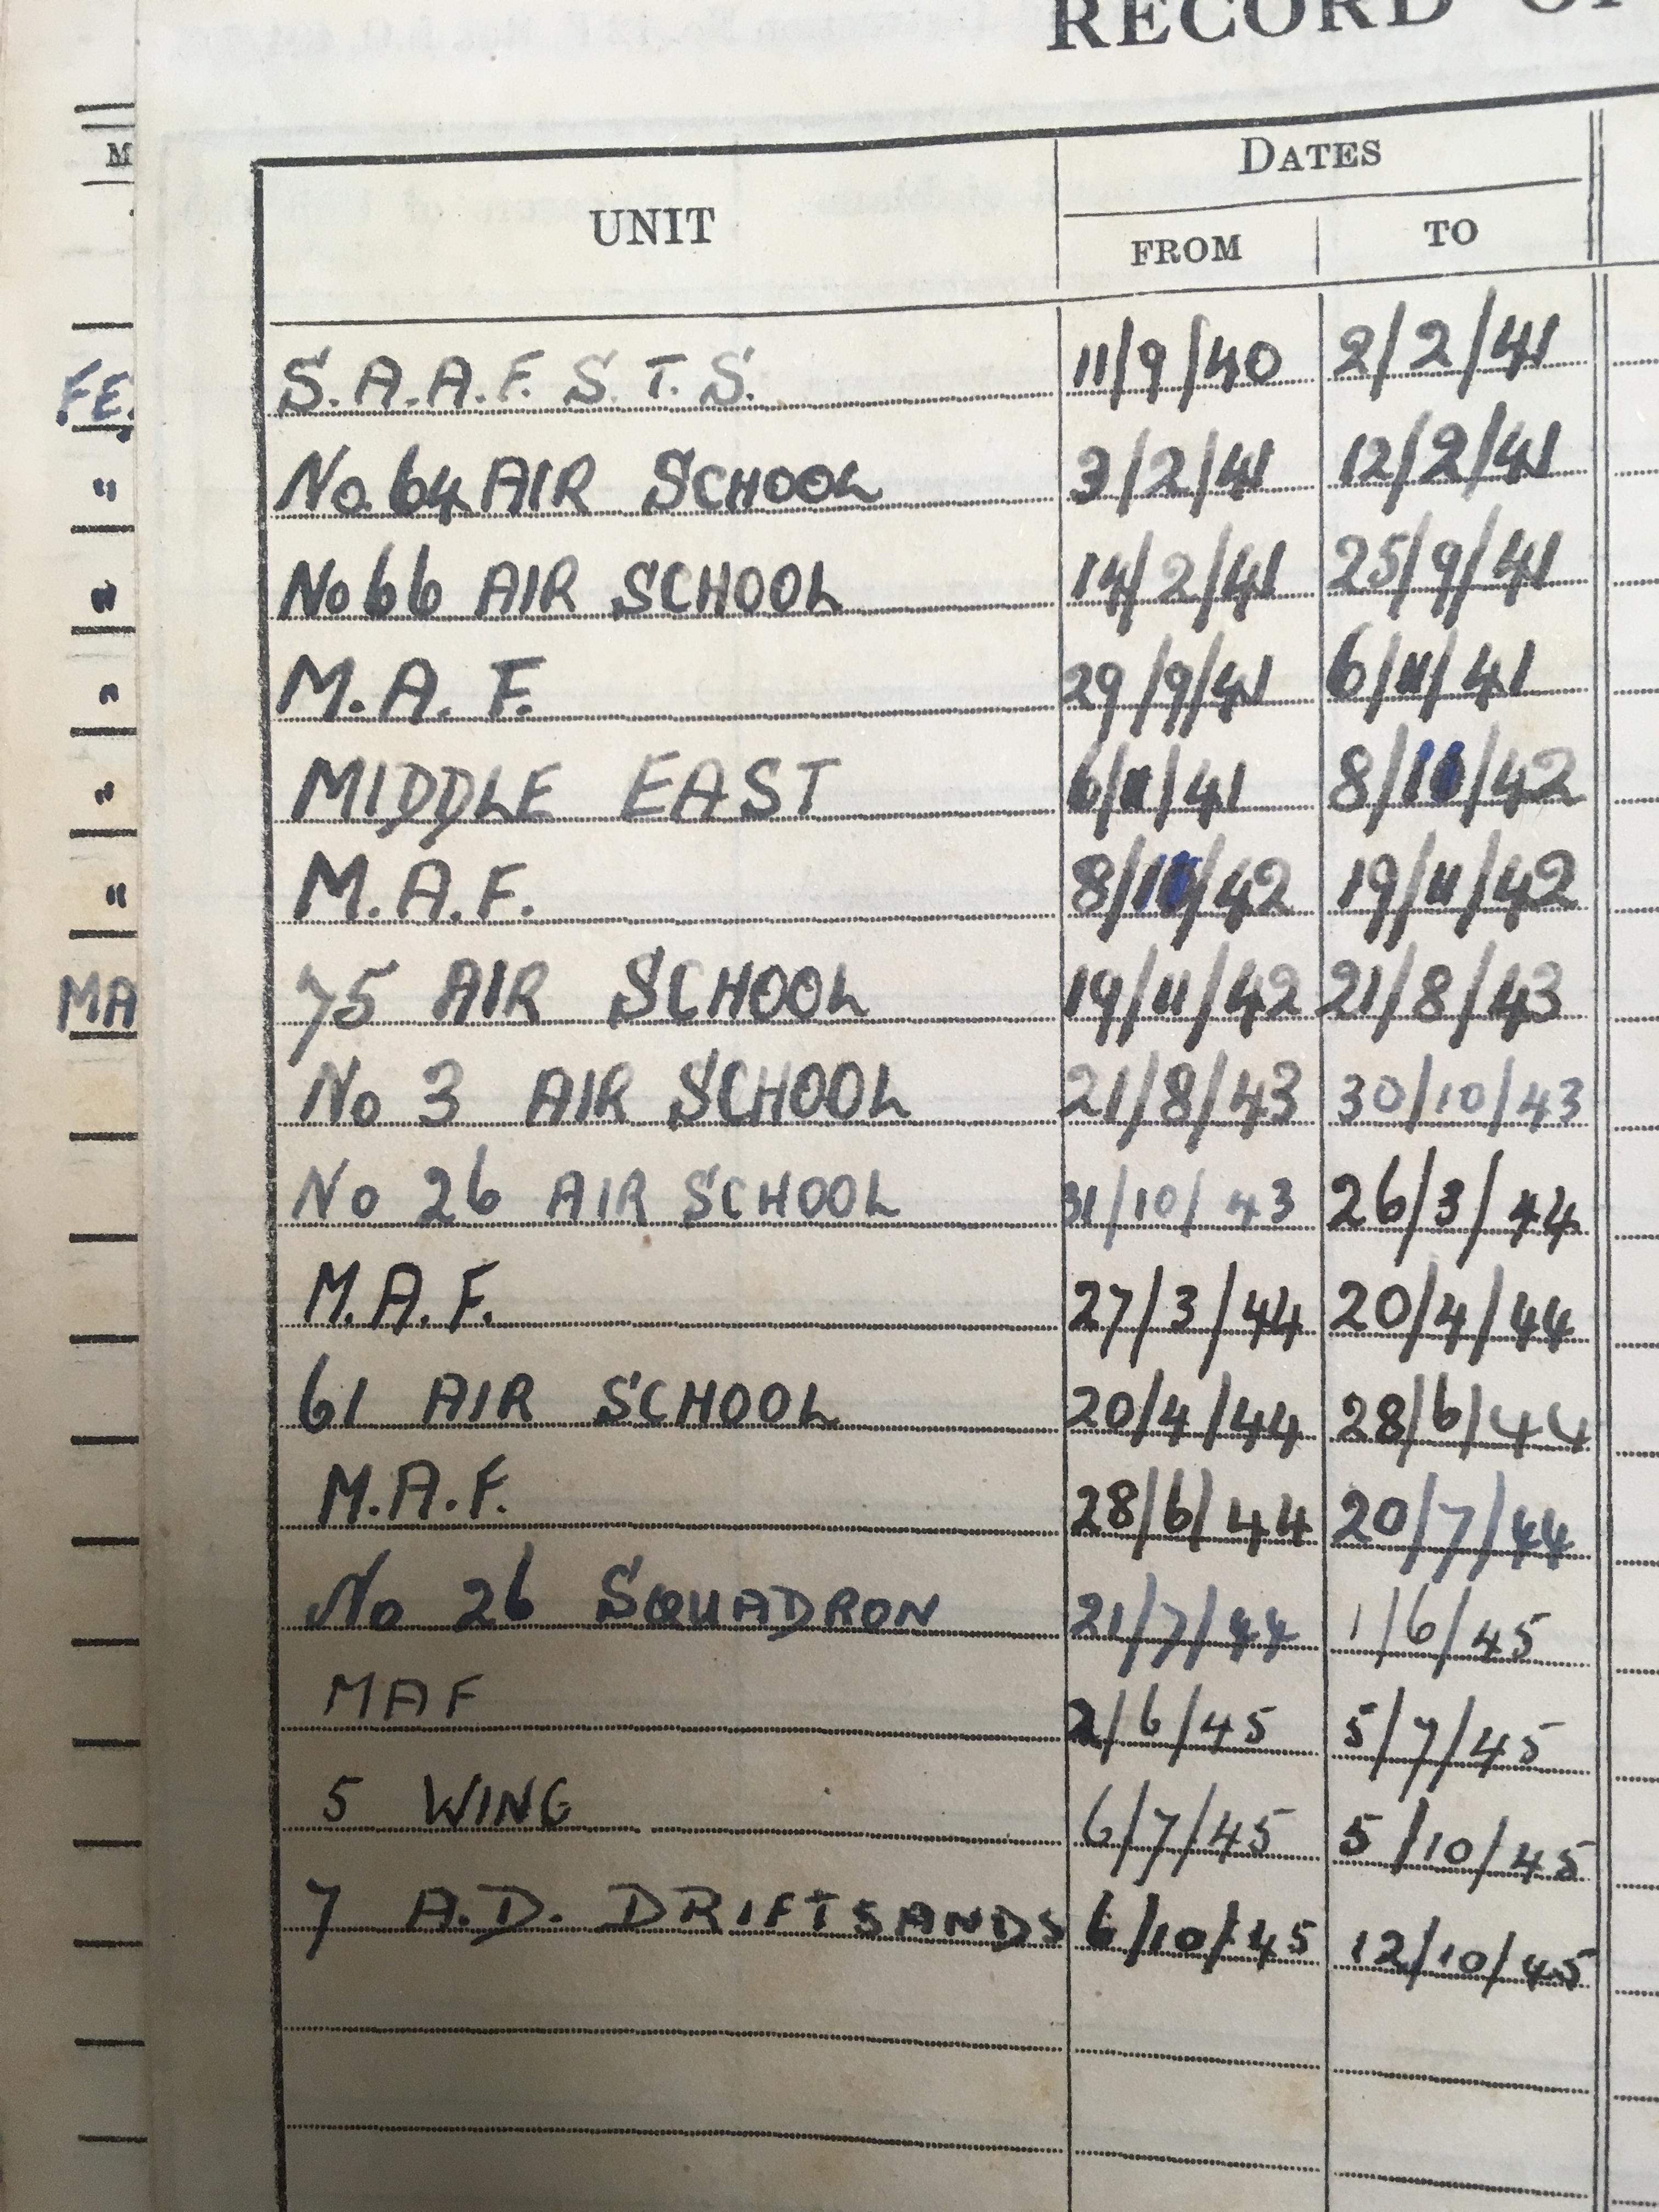 RECORD
DATES
UNIT FROM TO
S.A.A.F. S.T.S. 11/9/40 2/2/41
No. 64 AIR SCHOOL 3/2/41 12/2/41
No 66 AIR SCHOOL 14/2/41 25/9/41
M.A.F. 29/9/41 6/11/41
MIDDLE EAST 6/11/41
M.A.F. 19/11/42
75 AIR SCHOOL 19/11/42 21/8/43
No 3 AIR SCHOOL 21/8/43 30/10/43
No 26 AIR SCHOOL 31/10/43 26/3/44
M.A.F. 27/3/44 20/4/44
61 AIR SCHOOL 20/4/44 28/6/44
M.A.F. 28/6/44 20/7/44
No 26 SQUADRON 21/7/44 1/6/45
MAF 2/6/45 5/7/45
5 WING 6/7/45 5/10/45
7 A.D. DRIFTSANDS 6/10/45 12/10/45